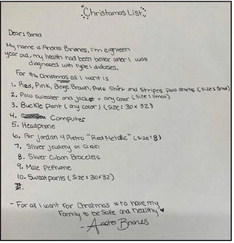 Christamas List
Dear Santa
My name is Andres Briones, I'm eighteen
year old, my health had been better after I was
diagnosed with type 1 diabetes.
For this Christmas all I want is
1. Red, Pink, Beige, Brown, Polo Shirt and Stripes Polo
2. Polo sweater and any color (size: small)
3. Buckle pant (any color) (size: 30 x 32)
4. Computer
5. Headphone
6. Air Jordan 4 Retro "Red Metallic" (size: 8)
7. Silver Jewelry or Chain
8. Silver Cuban Bracelets
9. Male Perfume
10. Sweatpants (size: 30x32)
- For all I want for Christmas is to have my
Family to be Safe and healthy
- Andres Briones